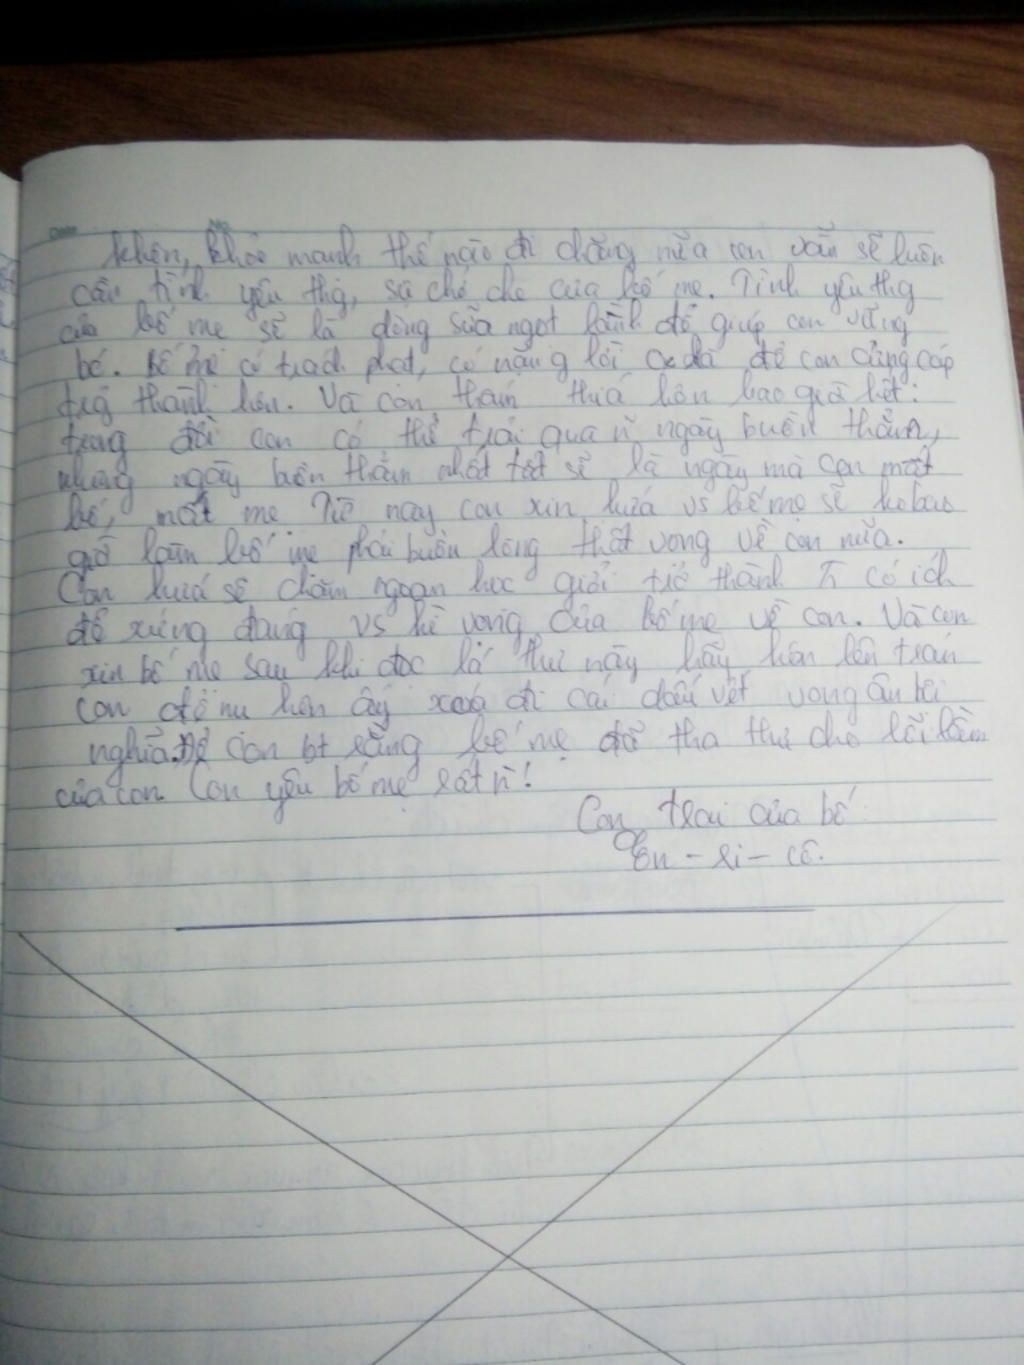 Date No
khôn, khỏe mạnh thế nào đi chăng nữa con vẫn sẽ luôn
cần tình yêu thg, sự chở che của bố mẹ. Tình yêu thg
của bố mẹ sẽ là dòng sữa ngọt lành để giúp con vững
bc. Bố mẹ có trách phạt, có nặng lời là để con cứng cáp
trg thành hơn. Và còn thấm thía hơn bao giờ hết:
trong đời con có thể trải qua ~n ngày buồn thảm,
nhưng ngày buồn thảm nhất tất sẽ là ngày mà con mất
bố, mất mẹ Từ nay con xin hứa vs bố mẹ sẽ ko bao
giờ làm bố mẹ phải buồn lòng thất vọng về con nữa.
Con hứa sẽ chăm ngoan học giỏi trở thành có ích
để xứng đáng vs kì vọng của bố mẹ về con. Và con
xin bố mẹ sau khi đọc lá thư này hãy hôn lên trán
con để nụ hôn ấy xoá đi cái dấu vết vong ân bội
nghĩa. Để con bt rằng bố mẹ đã tha thứ cho lỗi lầm
của con. Con yêu bố mẹ rất ~n!
Con trai của bố
En - ri - cô.